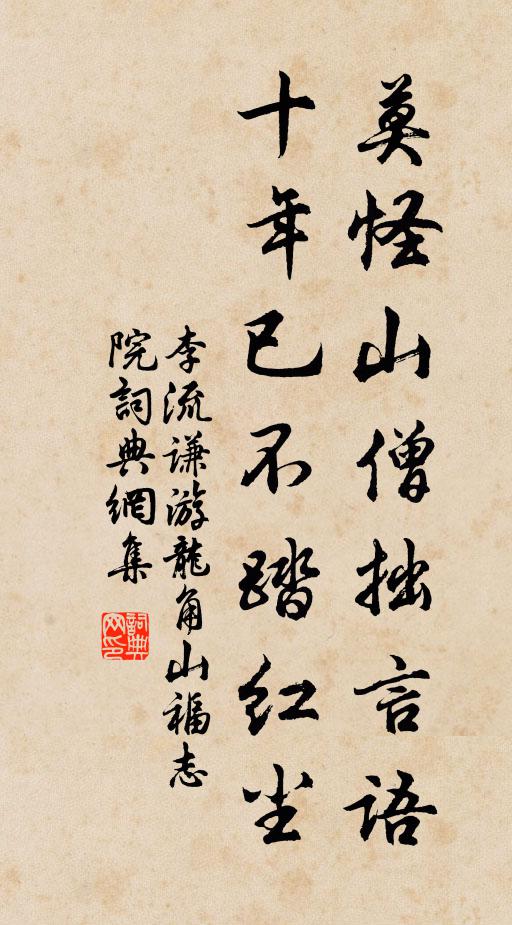 莫怪山僧拙言语
十年已不踏红尘
李流谦游龍角山福志
院詞典網集
詞典
网印